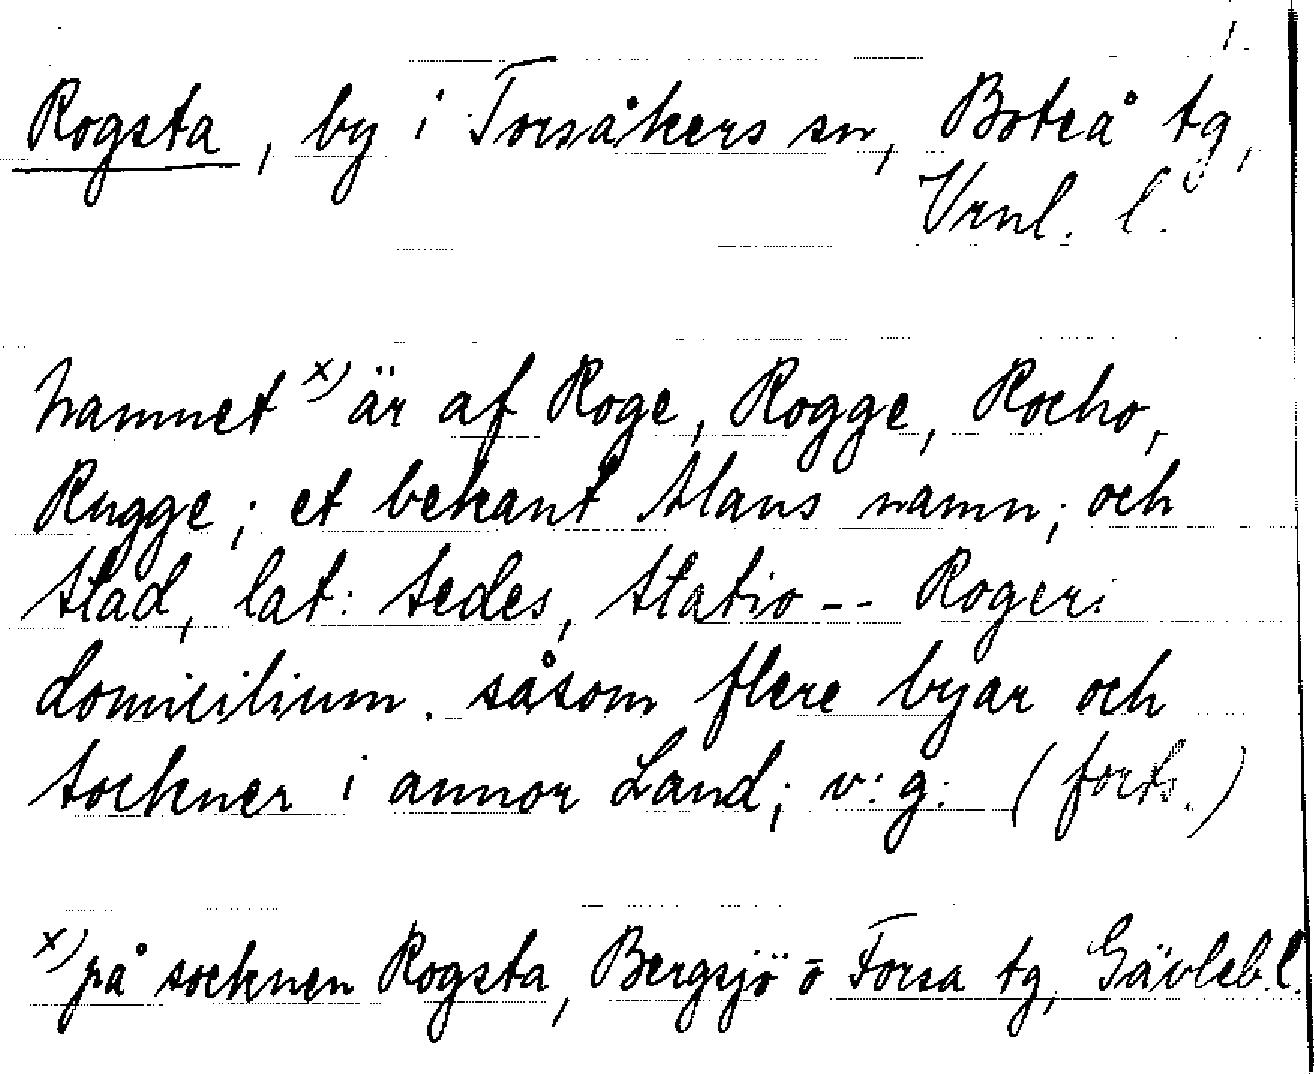 1.
Rogsta, by i Torsåkers sn, Boteå tg,
Vrnl. l.
Namnet x) är af Roge, Rogge, Rocho,
Rugge; et bekant Mans namn; och
Stad, lat: Sedes, Statio -- Rogeri
domicilium. såsom flere byar och
Sockner i annor Land; v: g: (forts.)
x) på socknen Rogsta, Bergsjö o Forsa tg, Gävleb. l.